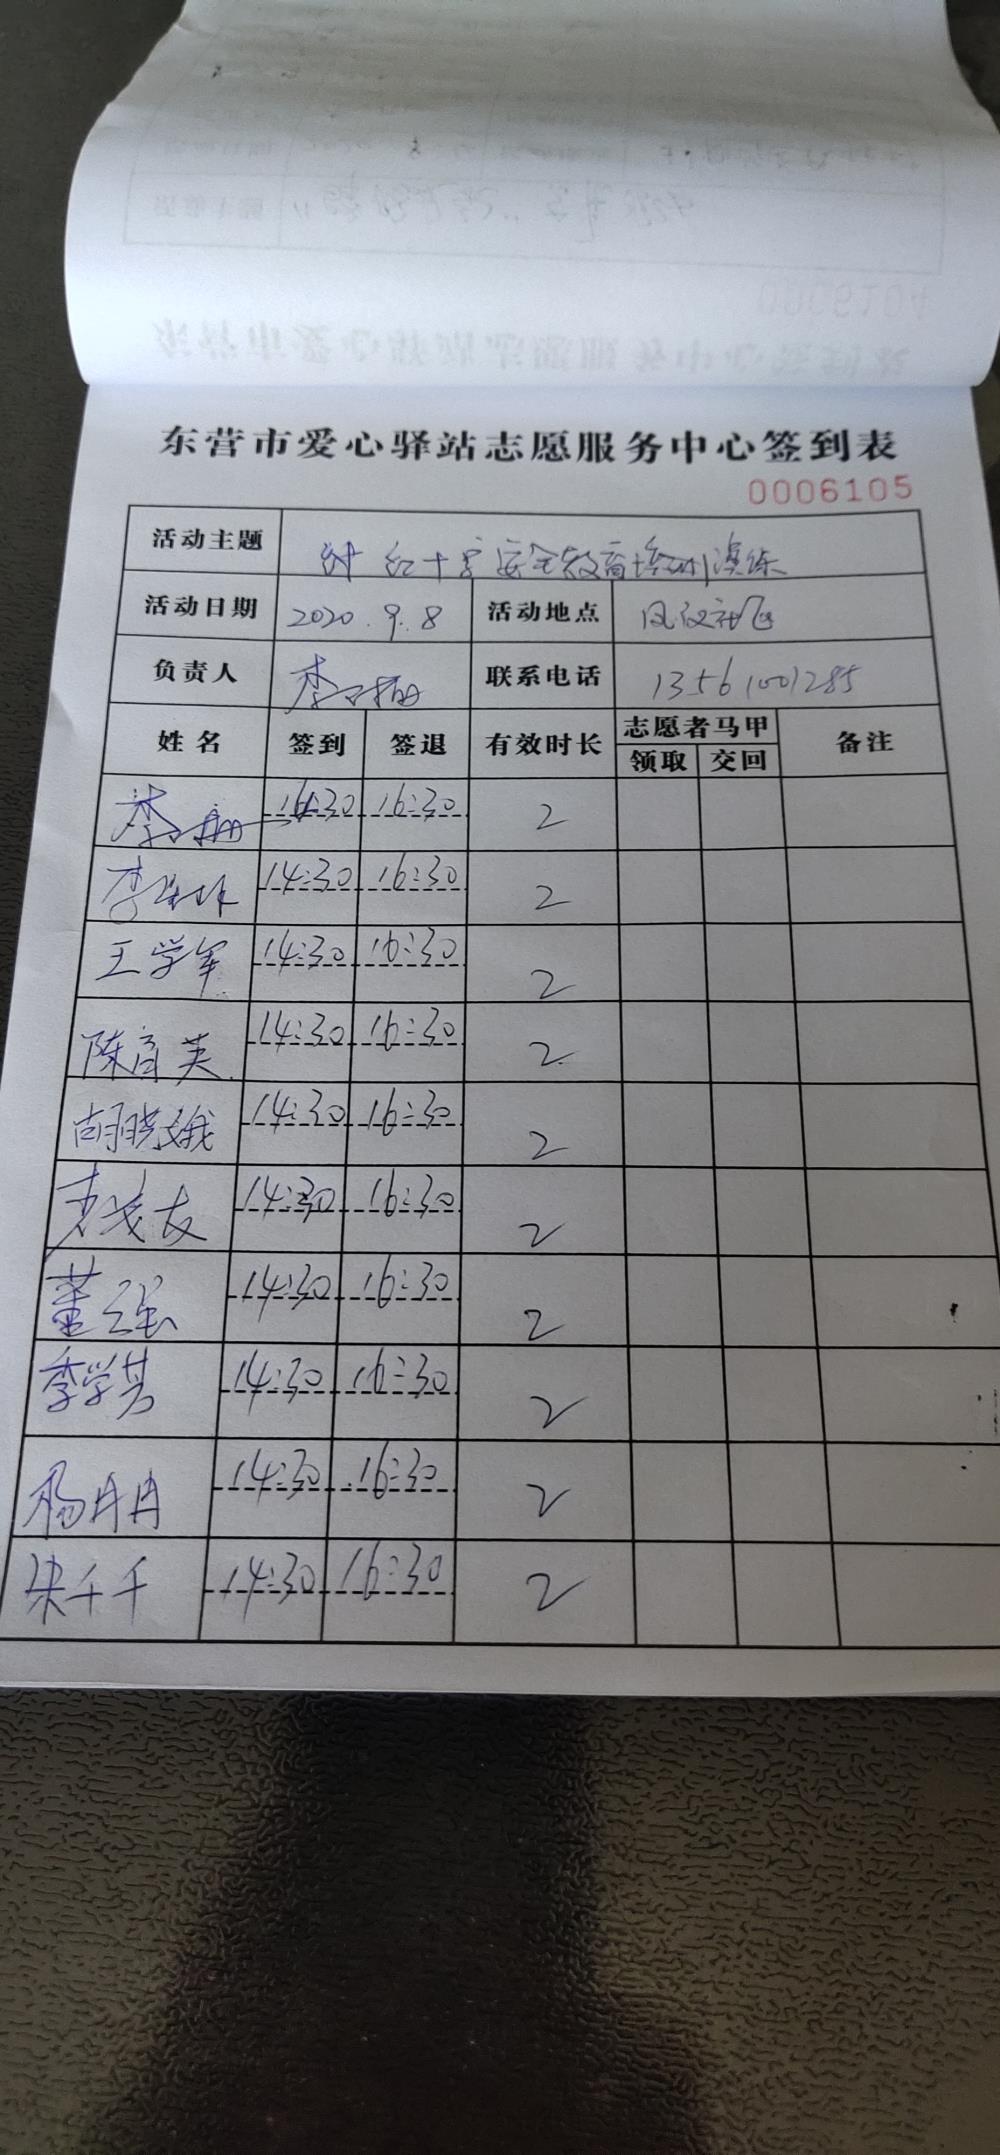 东营市爱心驿站志愿服务中心签到表
0006105
活动主题 红十字安全教育培训演练
活动日期 2020.9.8 活动地点
负责人 李 联系电话 13561001285
姓名 签到 签退 有效时长 志愿者马甲 备注
领取 交回
李 16:30 2
李 14:30 16:30 2
王学军 14:30 16:30 2
陈育英 14:30 16:30 2
胡晓娥 14:30 16:30 2
友 14:30 16:30 2
董 14:30 16:30 2
季学芳 14:30 16:30 2
杨冉冉 14:30 16:30 2
朱千千 14:30 16:30 2